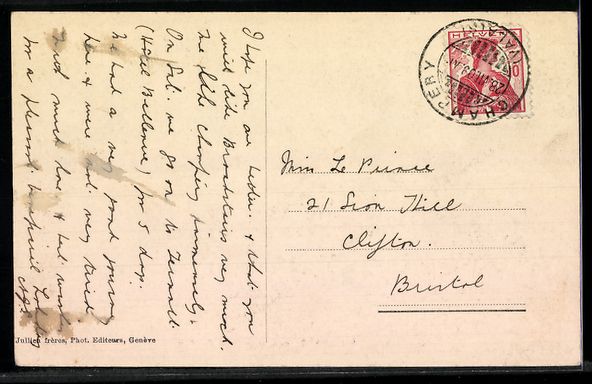 I hope you are better & that you
will like Broadstairs very much.
We like Champéry immensely.
On Sat. we go on to Zermatt
(Hôtel Bellevue) for 5 days.
We had a very good journey
here & were not very tired
much love & best wishes
for a pleasant
HELVETIA
CHAMPERY
(VALAIS)
Miss Le Prince
21 Sion Hill
Clifton.
Bristol
Jullien frères, Phot. Editeurs, Genève